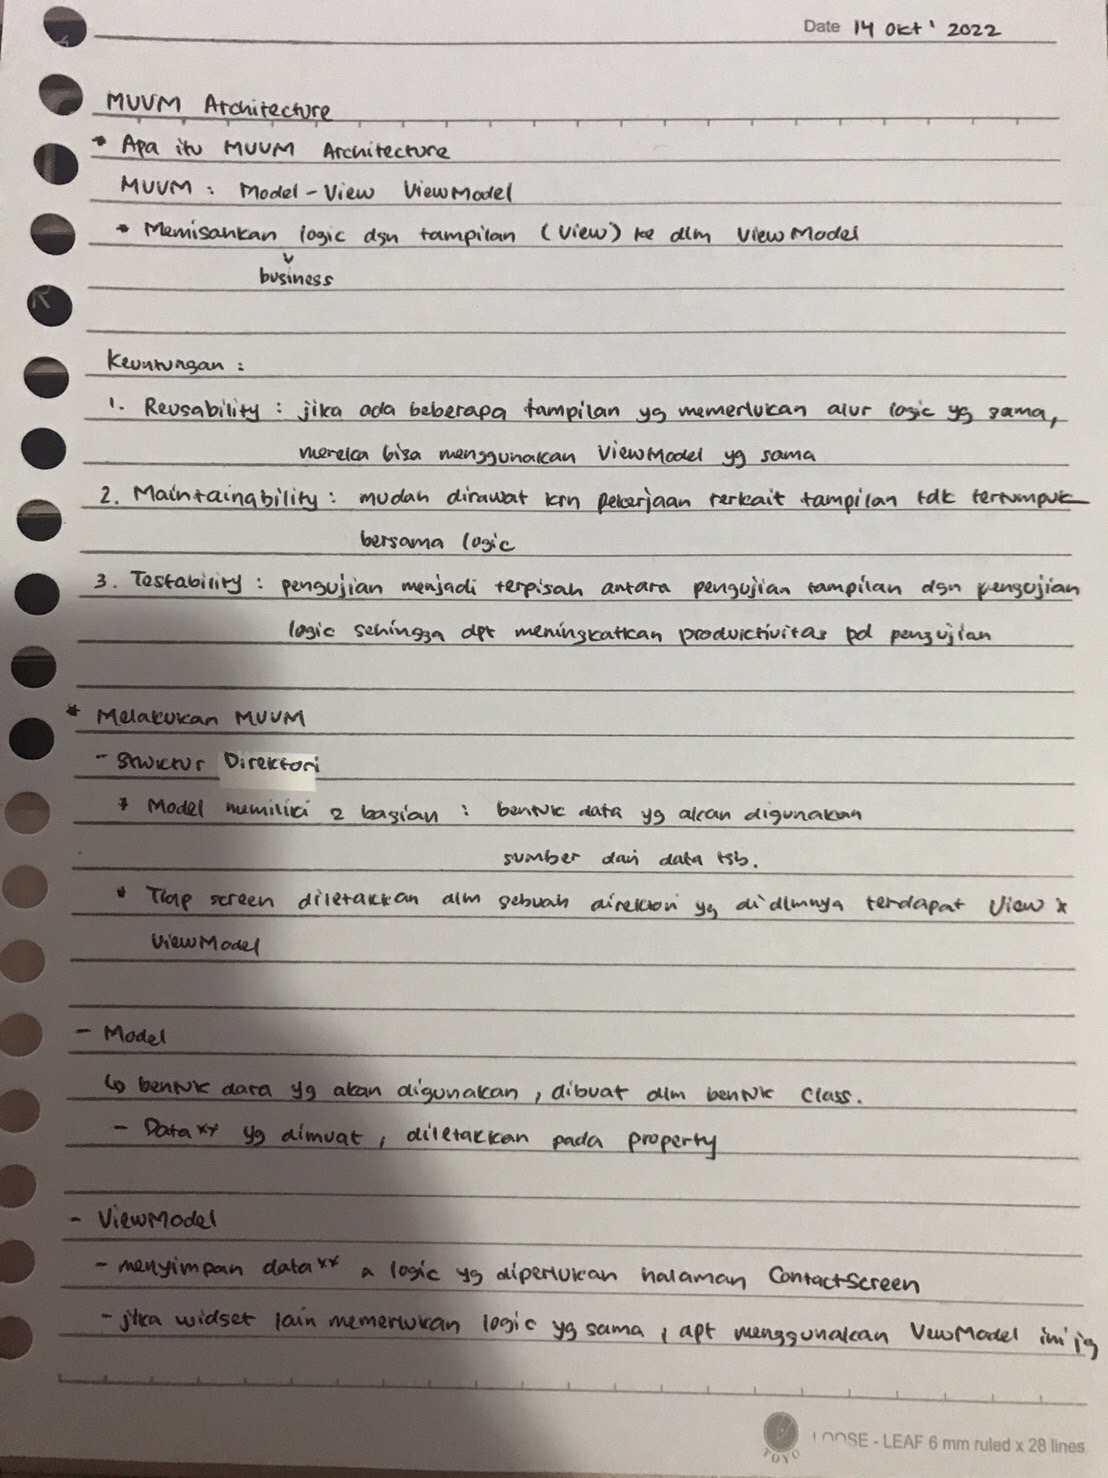 Date 14 Okt' 2022
MVVM Architecture
* Apa itu MVVM Architecture
MVVM : Model - View ViewModel
* Memisahkan logic dgn tampilan (View) ke dlm ViewModel
business
Keuntungan :
1. Reusability : jika ada beberapa tampilan yg memerlukan alur logic yg sama,
mereka bisa menggunakan ViewModel yg sama
2. Maintainability : mudah dirawat krn pekerjaan terkait tampilan tdk tertumpuk
bersama logic
3. Testability : pengujian menjadi terpisah antara pengujian tampilan dgn pengujian
logic sehingga dpt meningkatkan productivitas pd pengujian
* Melakukan MVVM
- Struktur Direktori
* Model memiliki 2 bagian : bentuk data yg akan digunakan
sumber dari data tsb.
* Tiap screen diletakkan dlm sebuah direktori yg di dlmnya terdapat View &
ViewModel
- Model
↳ bentuk data yg akan digunakan, dibuat dlm bentuk class.
- Data** yg dimuat, diletakkan pada property
- ViewModel
- menyimpan data** & logic yg diperlukan halaman ContactScreen
- jika widget lain memerlukan logic yg sama, dpt menggunakan ViewModel ini jg
TOYO
LOOSE - LEAF 6 mm ruled x 28 lines